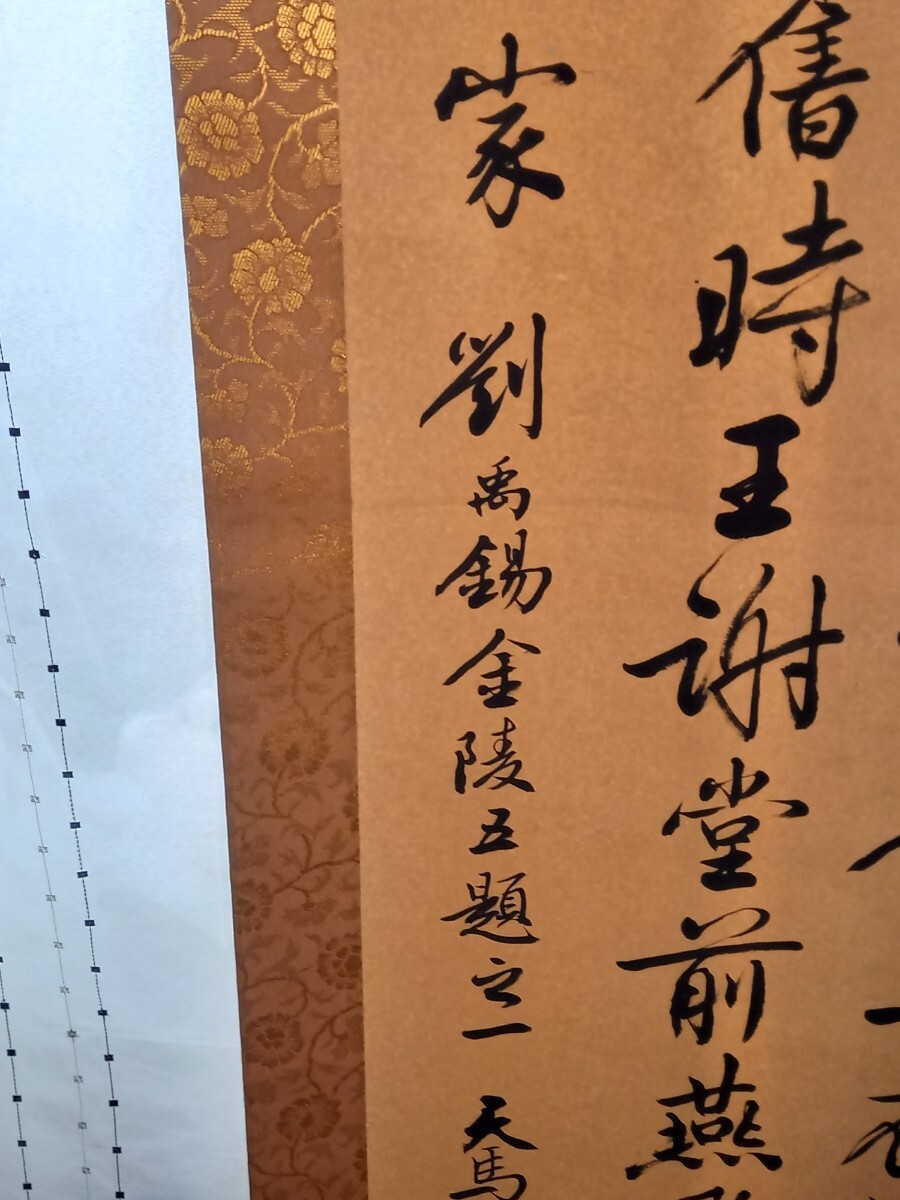 舊時王謝堂前燕
家 劉禹錫金陵五題之一 天馬